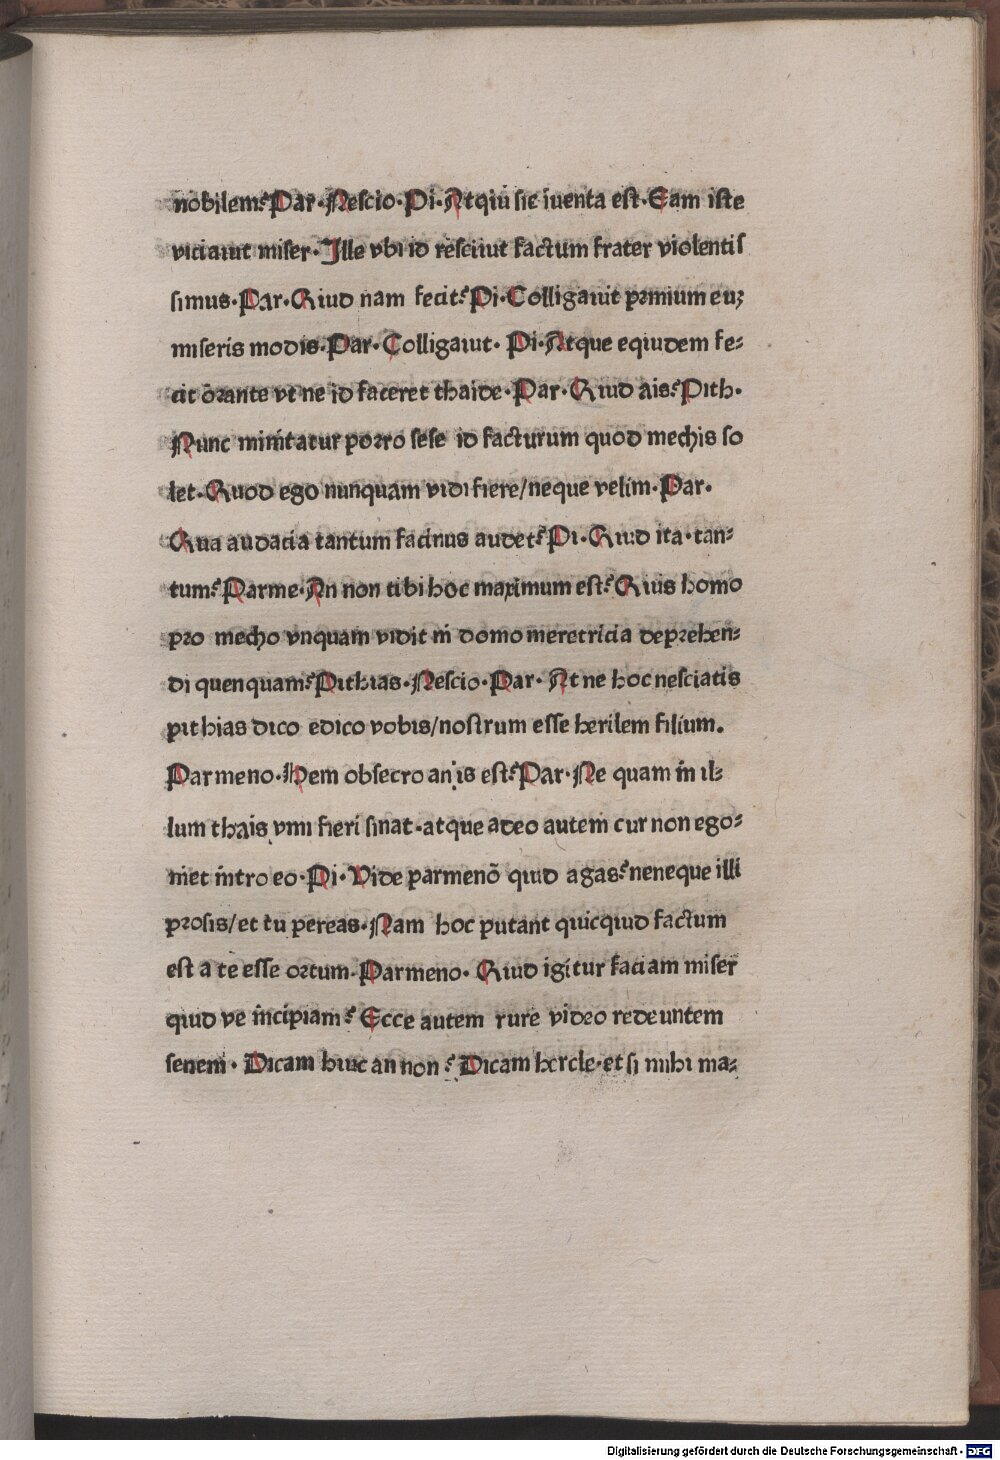 nobilem? Par·Nescio·Pi·Atqiu sic iuenta est·Eam iste
viciauit miser·Ille vbi id resciuit factum frater violentis
simus·Par·Quid nam fecit? Pi·Colligauit primium euz
miseris modis·Par·Colligauit· Pi·Atque equidem fe-
cit orante vt ne id faceret thaide·Par·Quid ais? Pith·
Nunc minitatur porro sese id facturum quod mechis so
let·Quod ego nunquam vidi fiere/neque velim·Par·
Qua audacia tantum facinus audet? Pi·Quid ita·tan-
tum? Parme·An non tibi hoc maximum est? Quis homo
pro mecho vnquam vidit in domo meretricia deprehen-
di quenquam? Pithias·Nescio·Par· At ne hoc nesciatis
pithias dico edico vobis/nostrum esse herilem filium.
Parmeno·Hem obsecro an is est? Par·Ne quam in il-
lum thais vim fieri sinat·atque adeo autem cur non ego-
met intro eo·Pi·Vide parmenō quid agas? neneque illi
prosis/et tu pereas·Nam hoc putant quicquid factum
est a te esse ortum·Parmeno· Quid igitur faciam miser
quid ve incipiam? Ecce autem rure video redeuntem
senem· Dicam huic an non? Dicam hercle·et si mihi ma-
Digitalisierung gefördert durch die Deutsche Forschungsgemeinschaft - DFG